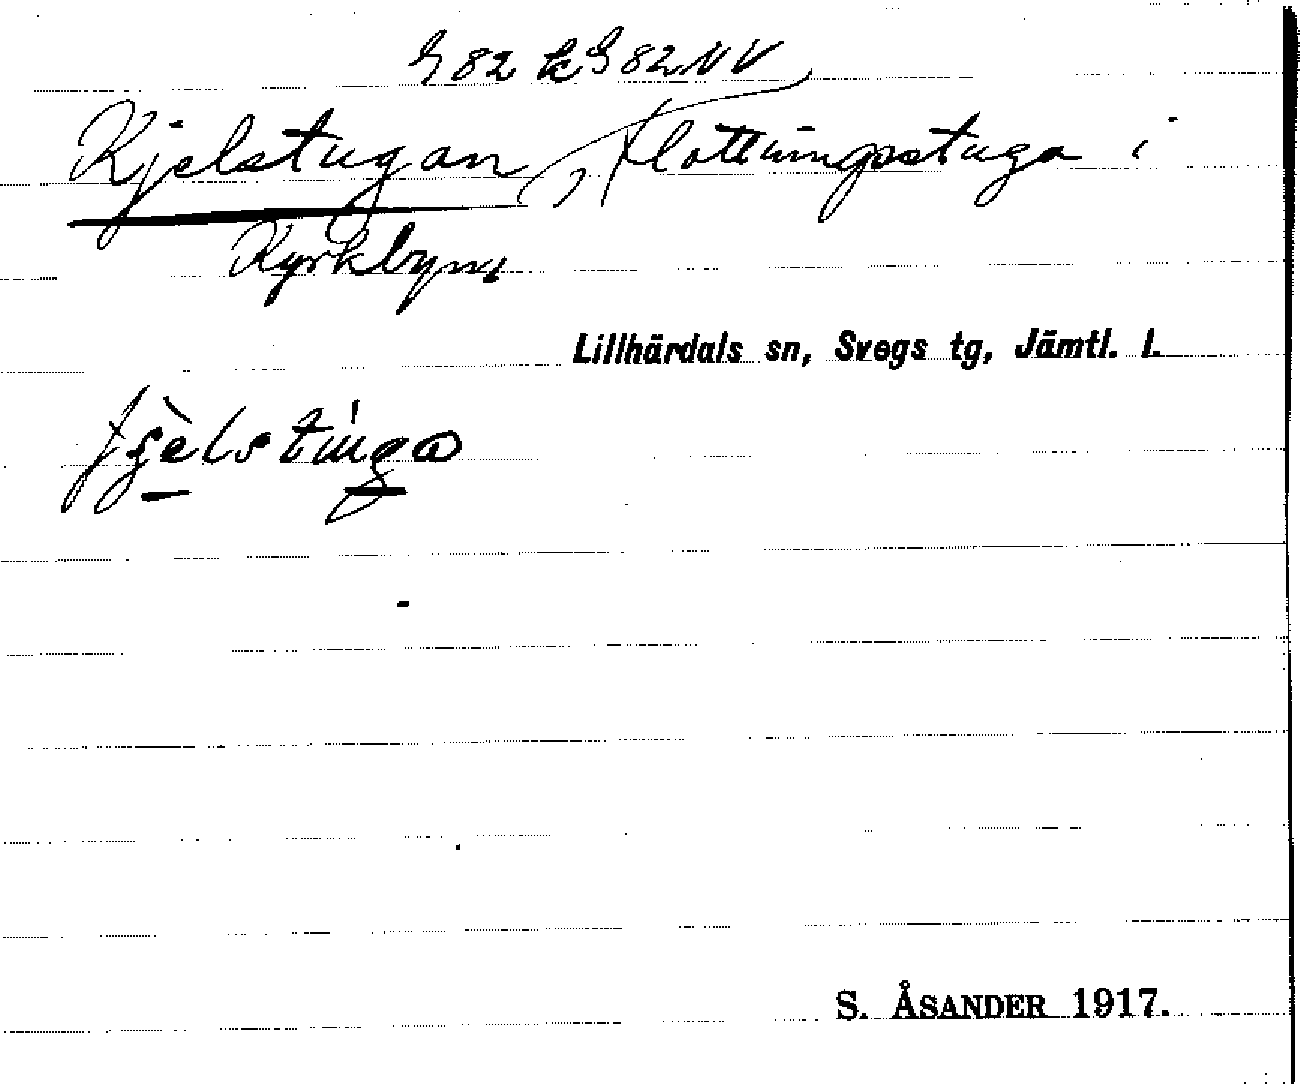 G 82 k G 82 NV
Kjelstugan, Flottningsstuga i
Kyrkbyn,
Lillhärdals sn, Svegs tg, Jämtl. l.
S. ÅSANDER 1917.